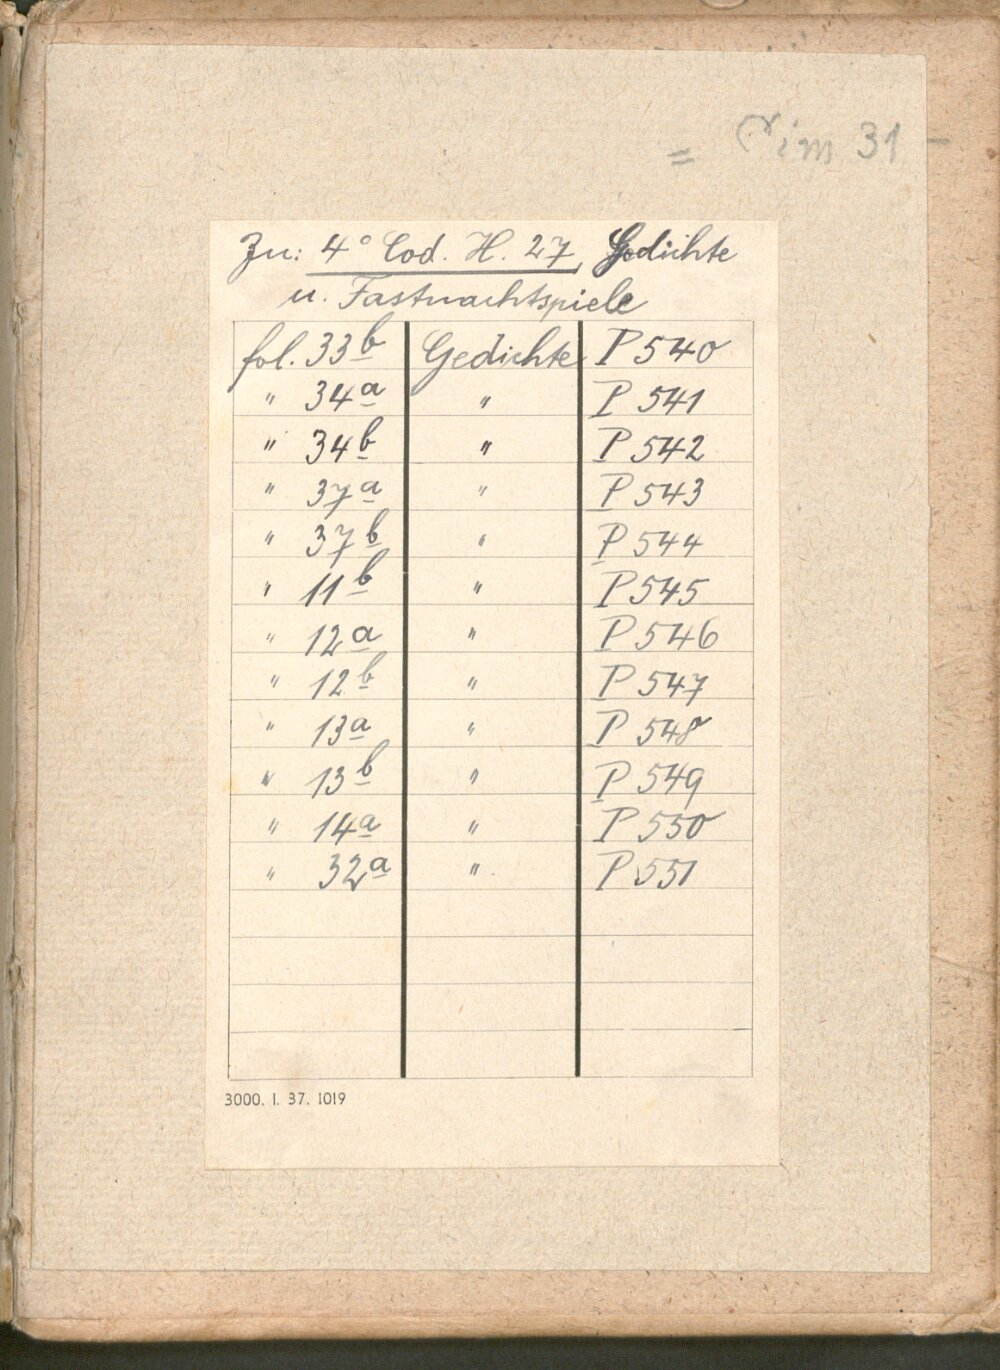 = Cim 31 –
Zu: 4° Cod. H. 27, Gedichte
u. Fastnachtspiele
fol. 33b Gedichte P 540
" 34a " P 541
" 34b " P 542
" 37a " P 543
" 37b " P 544
" 11b " P 545
" 12a " P 546
" 12b " P 547
" 13a " P 548
" 13b " P 549
" 14a " P 550
" 32a " P 551
3000. I. 37. 1019